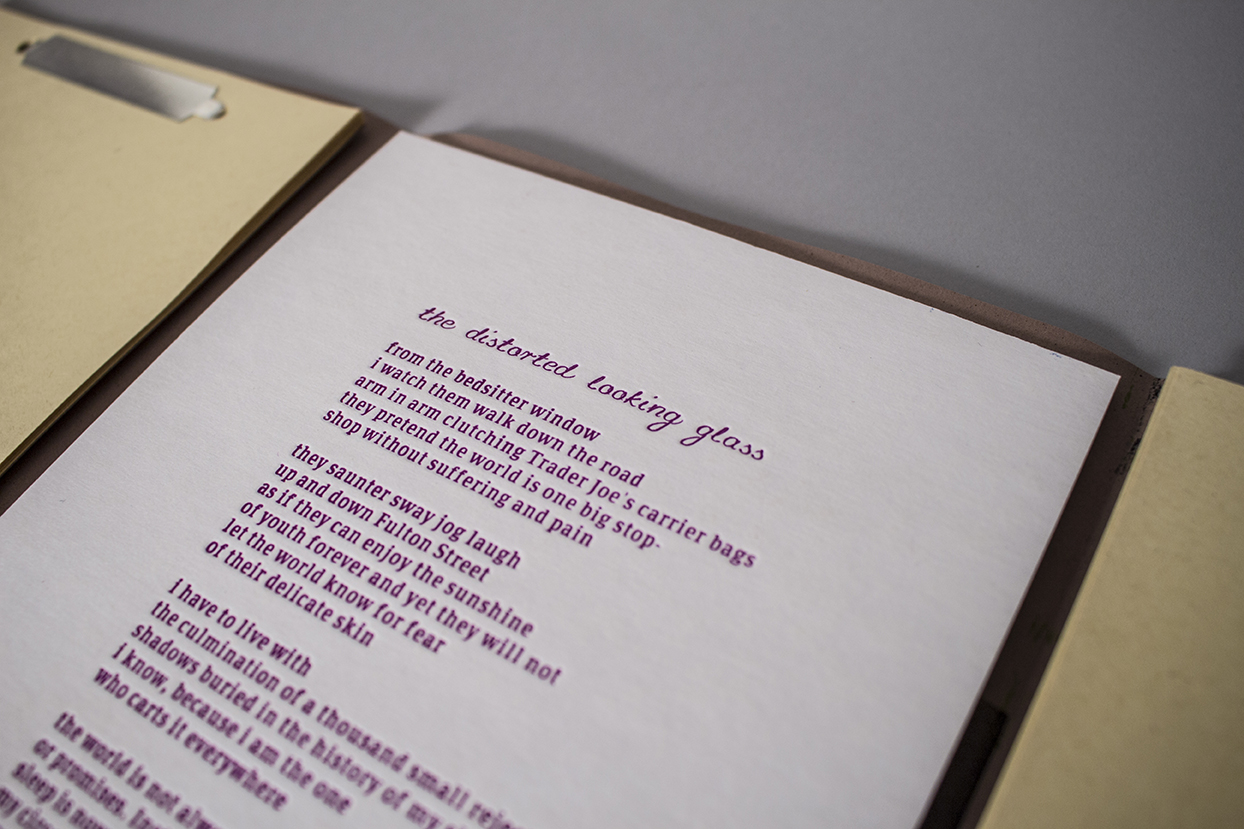 the distorted looking glass
from the bedsitter window
i watch them walk down the road
arm in arm clutching Trader Joe's carrier bags
they pretend the world is one big stop-
shop without suffering and pain
they saunter sway jog laugh
up and down Fulton Street
as if they can enjoy the sunshine
of youth forever and yet they will not
let the world know for fear
of their delicate skin
i have to live with
the culmination of a thousand small
shadows buried in the history of my
i know, because i am the one
who carts it everywhere
the world is not
or promises.
sleep is
my